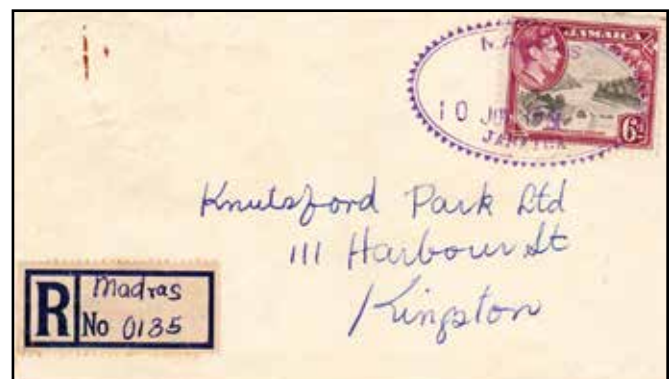 JAMAICA
6d
10
JAMAICA
Knutsford Park Ltd
111 Harbour St
Kingston
R
Madras
No 0135